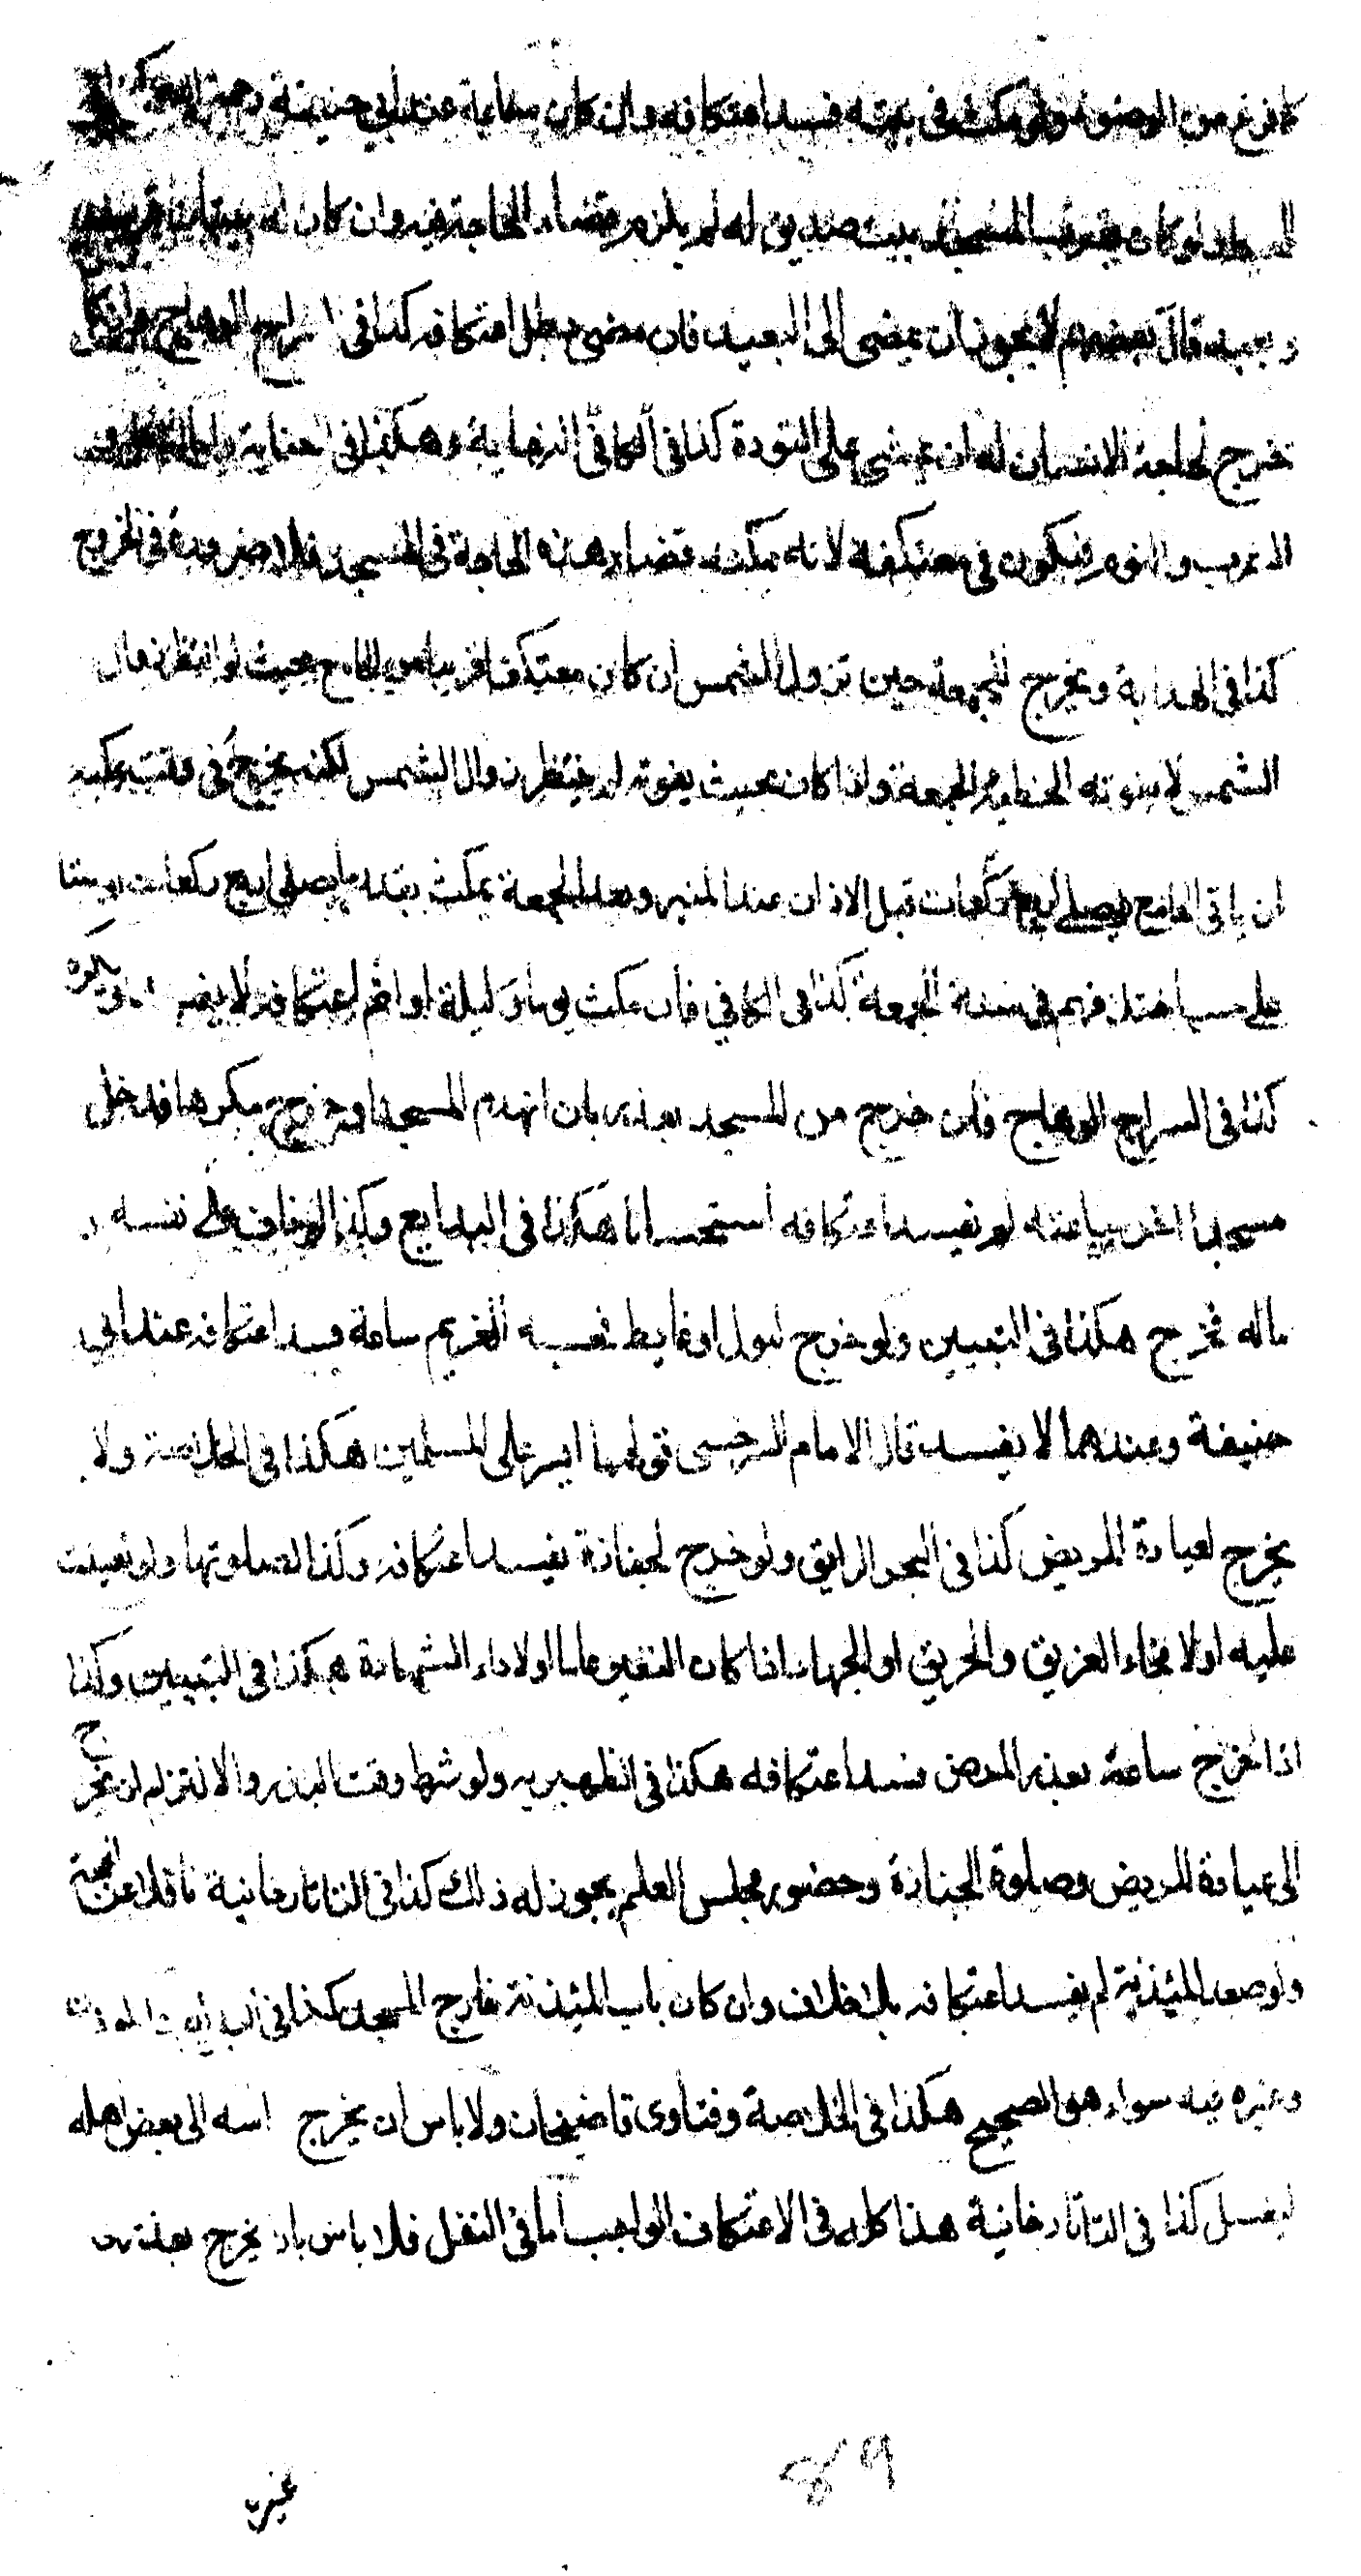 فرغ من الوضوء ولو مكث في بيته فسد اعتكافه وان كان ساعة عند أبي حنيفة رحمه الله كذا في
المحيط ولو كان بقرب المسجد بيت صديق له لم يلزم قضاء الحاجة فيه وان كان له بيتان قريب
وبعيد قال بعضهم لا يجوز أن يمضي الى البعيد فان مضى بطل اعتكافه كذا في السراج الوهاج واذا
خرج لحاجة الانسان له ان يمشي على التودة كذا في النهاية وهكذا في العناية
الشرب والنوم فيكون في معتكفه لانه يمكنه قضاء هذه الحاجة في المسجد فلا ضرورة في الخروج
كذا في الهداية ويخرج للجمعة حين تزول الشمس ان كان معتكفا قريبا من الجامع بحيث لو انتظر زوال
الشمس لا يفوته الخطبة والجمعة واذا كان بحيث يفوته لم ينتظر زوال الشمس لكنه يخرج في وقت يمكنه
ان ياتي الجامع فيصلي اربع ركعات قبل الاذان عند المنبر وبعد الجمعة يمكث بقدر ما يصلي اربع ركعات او ستا
على حسب اختلافهم في سنة الجمعة كذا في الكافي فان مكث يوما وليلة او اتم اعتكافه لا يفسد ويكره
كذا في السراج الوهاج فان خرج من المسجد بعذر بان انهدم المسجد او خرج مكرها فدخل
مسجدا اخر من ساعته لم يفسد اعتكافه استحسانا هكذا في البدايع وكذا لو خاف على نفسه و
ماله فخرج هكذا في التبيين ولو خرج لبول او غايط فحبسه الغريم ساعة فسد اعتكافه عند ابي
حنيفة وعندهما لا يفسد قال الامام السرخسي قولهما ايسر على المسلمين هكذا في الخلاصة ولا
يخرج لعيادة المريض كذا في البحر الرايق ولو خرج لجنازة يفسد اعتكافه وكذا لصلوتها ولو تعينت
عليه او لانجاء الغريق والحريق او الجهاد اذا كان النفير عاما او لاداء الشهادة هكذا في التبيين وكذا
اذا خرج ساعة بعذر المرض فسد اعتكافه هكذا في الظهيرية ولو شرط وقت النذر والالتزام ان يخرج
الى عيادة المريض وصلوة الجنازة وحضور مجلس العلم يجوز له ذلك كذا في التاتارخانية ناقلا عن الحجة
ولو صعد المئذنة لم يفسد اعتكافه بلا خلاف وان كان باب المئذنة خارج المسجد كذا في البدايع والموذن
وغيره فيه سواء هو الصحيح هكذا في الخلاصة وفتاوى قاضيخان ولا باس ان يخرج راسه الى بعض اهله
ليغسل كذا في التاتارخانية هذا كله في الاعتكاف الواجب اما في النفل فلا باس بان يخرج بعذر
89